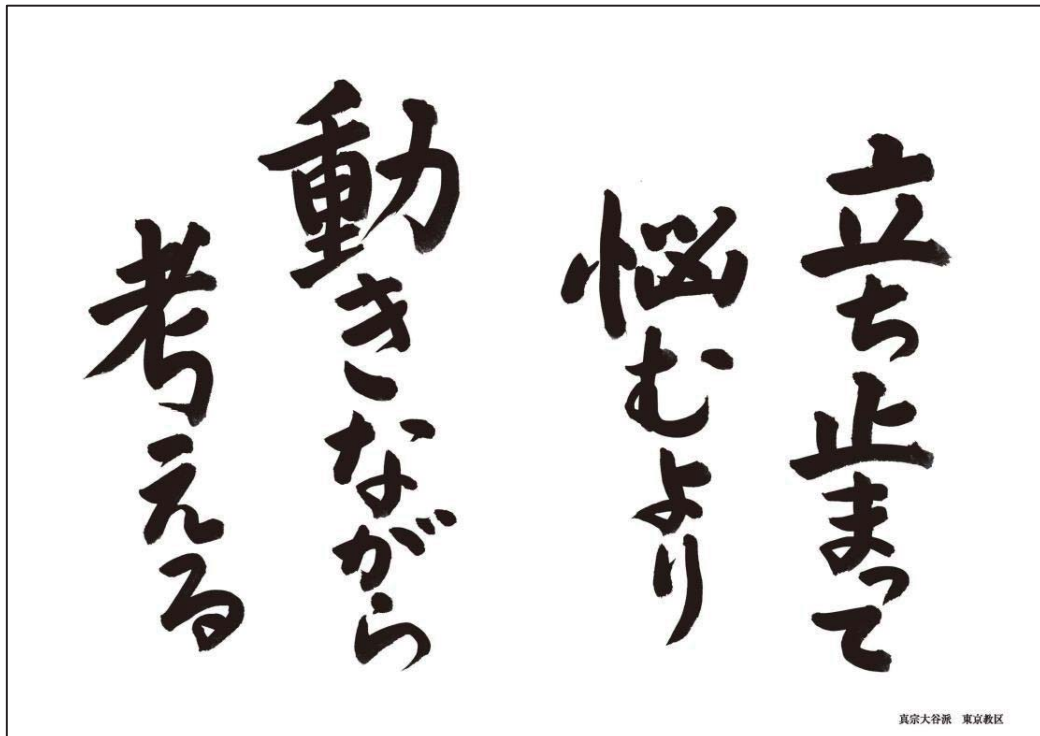 立ち止まって
悩むより
動きながら
考える
真宗大谷派　東京教区